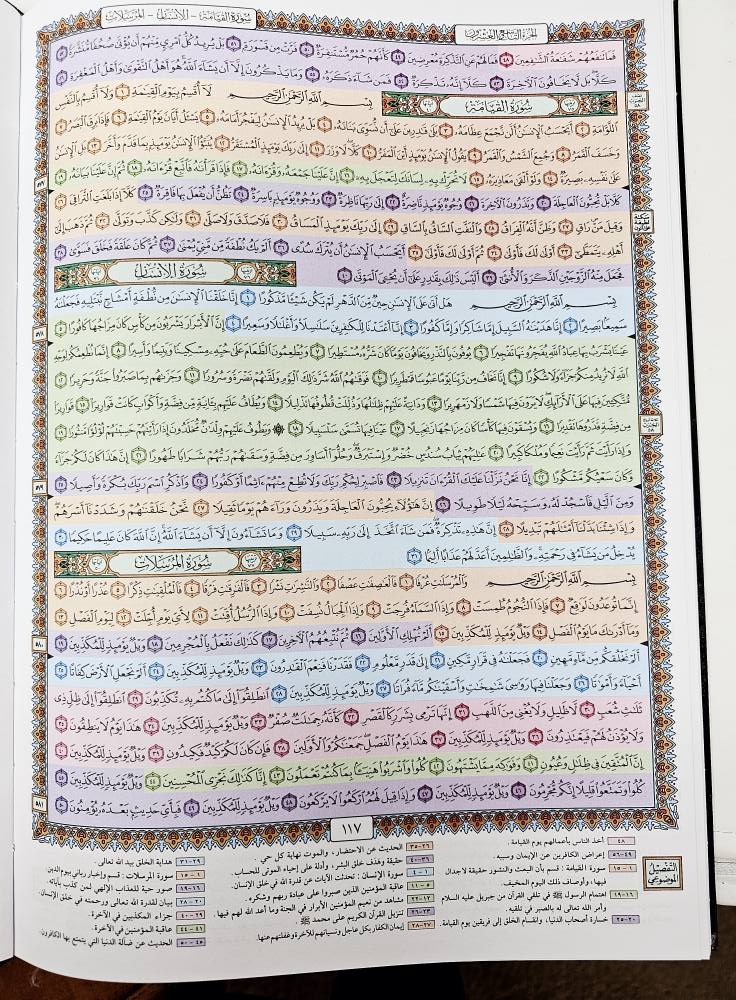 سورة القيامة - الإنسان - المرسلات
الجزء التاسع والعشرون
فَمَا تَنفَعُهُمْ شَفَاعَةُ الشَّافِعِينَ ٤٨ فَمَا لَهُمْ عَنِ التَّذْكِرَةِ مُعْرِضِينَ ٤٩ كَأَنَّهُمْ حُمُرٌ مُّسْتَنفِرَةٌ ٥٠ فَرَّتْ مِن قَسْوَرَةٍ ٥١ بَلْ يُرِيدُ كُلُّ امْرِئٍ مِّنْهُمْ أَن يُؤْتَىٰ صُحُفًا مُّنَشَّرَةً ٥٢
كَلَّا بَل لَّا يَخَافُونَ الْآخِرَةَ ٥٣ كَلَّا إِنَّهُ تَذْكِرَةٌ ٥٤ فَمَن شَاءَ ذَكَرَهُ ٥٥ وَمَا يَذْكُرُونَ إِلَّا أَن يَشَاءَ اللَّهُ هُوَ أَهْلُ التَّقْوَىٰ وَأَهْلُ الْمَغْفِرَةِ ٥٦
سُورَةُ القِيَامَةِ
بِسْمِ اللَّهِ الرَّحْمَٰنِ الرَّحِيمِ لَا أُقْسِمُ بِيَوْمِ الْقِيَامَةِ ١ وَلَا أُقْسِمُ بِالنَّفْسِ
اللَّوَّامَةِ ٢ أَيَحْسَبُ الْإِنسَانُ أَلَّن نَّجْمَعَ عِظَامَهُ ٣ بَلَىٰ قَادِرِينَ عَلَىٰ أَن نُّسَوِّيَ بَنَانَهُ ٤ بَلْ يُرِيدُ الْإِنسَانُ لِيَفْجُرَ أَمَامَهُ ٥ يَسْأَلُ أَيَّانَ يَوْمُ الْقِيَامَةِ ٦ فَإِذَا بَرِقَ الْبَصَرُ ٧
وَخَسَفَ الْقَمَرُ ٨ وَجُمِعَ الشَّمْسُ وَالْقَمَرُ ٩ يَقُولُ الْإِنسَانُ يَوْمَئِذٍ أَيْنَ الْمَفَرُّ ١٠ كَلَّا لَا وَزَرَ ١١ إِلَىٰ رَبِّكَ يَوْمَئِذٍ الْمُسْتَقَرُّ ١٢ يُنَبَّأُ الْإِنسَانُ يَوْمَئِذٍ بِمَا قَدَّمَ وَأَخَّرَ ١٣ بَلِ الْإِنسَانُ
عَلَىٰ نَفْسِهِ بَصِيرَةٌ ١٤ وَلَوْ أَلْقَىٰ مَعَاذِيرَهُ ١٥ لَا تُحَرِّكْ بِهِ لِسَانَكَ لِتَعْجَلَ بِهِ ١٦ إِنَّ عَلَيْنَا جَمْعَهُ وَقُرْآنَهُ ١٧ فَإِذَا قَرَأْنَاهُ فَاتَّبِعْ قُرْآنَهُ ١٨ ثُمَّ إِنَّ عَلَيْنَا بَيَانَهُ ١٩
كَلَّا بَلْ تُحِبُّونَ الْعَاجِلَةَ ٢٠ وَتَذَرُونَ الْآخِرَةَ ٢١ وُجُوهٌ يَوْمَئِذٍ نَّاضِرَةٌ ٢٢ إِلَىٰ رَبِّهَا نَاظِرَةٌ ٢٣ وَوُجُوهٌ يَوْمَئِذٍ بَاسِرَةٌ ٢٤ تَظُنُّ أَن يُفْعَلَ بِهَا فَاقِرَةٌ ٢٥ كَلَّا إِذَا بَلَغَتِ التَّرَاقِيَ ٢٦
وَقِيلَ مَنْ رَاقٍ ٢٧ وَظَنَّ أَنَّهُ الْفِرَاقُ ٢٨ وَالْتَفَّتِ السَّاقُ بِالسَّاقِ ٢٩ إِلَىٰ رَبِّكَ يَوْمَئِذٍ الْمَسَاقُ ٣٠ فَلَا صَدَّقَ وَلَا صَلَّىٰ ٣١ وَلَٰكِن كَذَّبَ وَتَوَلَّىٰ ٣٢ ثُمَّ ذَهَبَ إِلَىٰ
أَهْلِهِ يَتَمَطَّىٰ ٣٣ أَوْلَىٰ لَكَ فَأَوْلَىٰ ٣٤ ثُمَّ أَوْلَىٰ لَكَ فَأَوْلَىٰ ٣٥ أَيَحْسَبُ الْإِنسَانُ أَن يُتْرَكَ سُدًى ٣٦ أَلَمْ يَكُ نُطْفَةً مِّن مَّنِيٍّ يُمْنَىٰ ٣٧ ثُمَّ كَانَ عَلَقَةً فَخَلَقَ فَسَوَّىٰ ٣٨
فَجَعَلَ مِنْهُ الزَّوْجَيْنِ الذَّكَرَ وَالْأُنثَىٰ ٣٩ أَلَيْسَ ذَٰلِكَ بِقَادِرٍ عَلَىٰ أَن يُحْيِيَ الْمَوْتَىٰ ٤٠
سُورَةُ الإِنسَانِ
بِسْمِ اللَّهِ الرَّحْمَٰنِ الرَّحِيمِ هَلْ أَتَىٰ عَلَى الْإِنسَانِ حِينٌ مِّنَ الدَّهْرِ لَمْ يَكُن شَيْئًا مَّذْكُورًا ١ إِنَّا خَلَقْنَا الْإِنسَانَ مِن نُّطْفَةٍ أَمْشَاجٍ نَّبْتَلِيهِ فَجَعَلْنَاهُ
سَمِيعًا بَصِيرًا ٢ إِنَّا هَدَيْنَاهُ السَّبِيلَ إِمَّا شَاكِرًا وَإِمَّا كَفُورًا ٣ إِنَّا أَعْتَدْنَا لِلْكَافِرِينَ سَلَاسِلَا وَأَغْلَالًا وَسَعِيرًا ٤ إِنَّ الْأَبْرَارَ يَشْرَبُونَ مِن كَأْسٍ كَانَ مِزَاجُهَا كَافُورًا ٥
عَيْنًا يَشْرَبُ بِهَا عِبَادُ اللَّهِ يُفَجِّرُونَهَا تَفْجِيرًا ٦ يُوفُونَ بِالنَّذْرِ وَيَخَافُونَ يَوْمًا كَانَ شَرُّهُ مُسْتَطِيرًا ٧ وَيُطْعِمُونَ الطَّعَامَ عَلَىٰ حُبِّهِ مِسْكِينًا وَيَتِيمًا وَأَسِيرًا ٨ إِنَّمَا نُطْعِمُكُمْ لِوَجْهِ
اللَّهِ لَا نُرِيدُ مِنكُمْ جَزَاءً وَلَا شُكُورًا ٩ إِنَّا نَخَافُ مِن رَّبِّنَا يَوْمًا عَبُوسًا قَمْطَرِيرًا ١٠ فَوَقَاهُمُ اللَّهُ شَرَّ ذَٰلِكَ الْيَوْمِ وَلَقَّاهُمْ نَضْرَةً وَسُرُورًا ١١ وَجَزَاهُم بِمَا صَبَرُوا جَنَّةً وَحَرِيرًا ١٢
مُّتَّكِئِينَ فِيهَا عَلَى الْأَرَائِكِ لَا يَرَوْنَ فِيهَا شَمْسًا وَلَا زَمْهَرِيرًا ١٣ وَدَانِيَةً عَلَيْهِمْ ظِلَالُهَا وَذُلِّلَتْ قُطُوفُهَا تَذْلِيلًا ١٤ وَيُطَافُ عَلَيْهِم بِآنِيَةٍ مِّن فِضَّةٍ وَأَكْوَابٍ كَانَتْ قَوَارِيرَا ١٥ قَوَارِيرَا
مِن فِضَّةٍ قَدَّرُوهَا تَقْدِيرًا ١٦ وَيُسْقَوْنَ فِيهَا كَأْسًا كَانَ مِزَاجُهَا زَنجَبِيلًا ١٧ عَيْنًا فِيهَا تُسَمَّىٰ سَلْسَبِيلًا ١٨ ۞ وَيَطُوفُ عَلَيْهِمْ وِلْدَانٌ مُّخَلَّدُونَ إِذَا رَأَيْتَهُمْ حَسِبْتَهُمْ لُؤْلُؤًا مَّنثُورًا ١٩
وَإِذَا رَأَيْتَ ثَمَّ رَأَيْتَ نَعِيمًا وَمُلْكًا كَبِيرًا ٢٠ عَالِيَهُمْ ثِيَابُ سُندُسٍ خُضْرٌ وَإِسْتَبْرَقٌ وَحُلُّوا أَسَاوِرَ مِن فِضَّةٍ وَسَقَاهُمْ رَبُّهُمْ شَرَابًا طَهُورًا ٢١ إِنَّ هَٰذَا كَانَ لَكُمْ جَزَاءً
وَكَانَ سَعْيُكُم مَّشْكُورًا ٢٢ إِنَّا نَحْنُ نَزَّلْنَا عَلَيْكَ الْقُرْآنَ تَنزِيلًا ٢٣ فَاصْبِرْ لِحُكْمِ رَبِّكَ وَلَا تُطِعْ مِنْهُمْ آثِمًا أَوْ كَفُورًا ٢٤ وَاذْكُرِ اسْمَ رَبِّكَ بُكْرَةً وَأَصِيلًا ٢٥
وَمِنَ اللَّيْلِ فَاسْجُدْ لَهُ وَسَبِّحْهُ لَيْلًا طَوِيلًا ٢٦ إِنَّ هَٰؤُلَاءِ يُحِبُّونَ الْعَاجِلَةَ وَيَذَرُونَ وَرَاءَهُمْ يَوْمًا ثَقِيلًا ٢٧ نَّحْنُ خَلَقْنَاهُمْ وَشَدَدْنَا أَسْرَهُمْ
وَإِذَا شِئْنَا بَدَّلْنَا أَمْثَالَهُمْ تَبْدِيلًا ٢٨ إِنَّ هَٰذِهِ تَذْكِرَةٌ فَمَن شَاءَ اتَّخَذَ إِلَىٰ رَبِّهِ سَبِيلًا ٢٩ وَمَا تَشَاءُونَ إِلَّا أَن يَشَاءَ اللَّهُ إِنَّ اللَّهَ كَانَ عَلِيمًا حَكِيمًا ٣٠
يُدْخِلُ مَن يَشَاءُ فِي رَحْمَتِهِ وَالظَّالِمِينَ أَعَدَّ لَهُمْ عَذَابًا أَلِيمًا ٣١
سُورَةُ المُرْسَلَاتِ
بِسْمِ اللَّهِ الرَّحْمَٰنِ الرَّحِيمِ وَالْمُرْسَلَاتِ عُرْفًا ١ فَالْعَاصِفَاتِ عَصْفًا ٢ وَالنَّاشِرَاتِ نَشْرًا ٣ فَالْفَارِقَاتِ فَرْقًا ٤ فَالْمُلْقِيَاتِ ذِكْرًا ٥ عُذْرًا أَوْ نُذْرًا ٦
إِنَّمَا تُوعَدُونَ لَوَاقِعٌ ٧ فَإِذَا النُّجُومُ طُمِسَتْ ٨ وَإِذَا السَّمَاءُ فُرِجَتْ ٩ وَإِذَا الْجِبَالُ نُسِفَتْ ١٠ وَإِذَا الرُّسُلُ أُقِّتَتْ ١١ لِأَيِّ يَوْمٍ أُجِّلَتْ ١٢ لِيَوْمِ الْفَصْلِ ١٣
وَمَا أَدْرَاكَ مَا يَوْمُ الْفَصْلِ ١٤ وَيْلٌ يَوْمَئِذٍ لِّلْمُكَذِّبِينَ ١٥ أَلَمْ نُهْلِكِ الْأَوَّلِينَ ١٦ ثُمَّ نُتْبِعُهُمُ الْآخِرِينَ ١٧ كَذَٰلِكَ نَفْعَلُ بِالْمُجْرِمِينَ ١٨ وَيْلٌ يَوْمَئِذٍ لِّلْمُكَذِّبِينَ ١٩
أَلَمْ نَخْلُقكُّم مِّن مَّاءٍ مَّهِينٍ ٢٠ فَجَعَلْنَاهُ فِي قَرَارٍ مَّكِينٍ ٢١ إِلَىٰ قَدَرٍ مَّعْلُومٍ ٢٢ فَقَدَرْنَا فَنِعْمَ الْقَادِرُونَ ٢٣ وَيْلٌ يَوْمَئِذٍ لِّلْمُكَذِّبِينَ ٢٤ أَلَمْ نَجْعَلِ الْأَرْضَ كِفَاتًا ٢٥
أَحْيَاءً وَأَمْوَاتًا ٢٦ وَجَعَلْنَا فِيهَا رَوَاسِيَ شَامِخَاتٍ وَأَسْقَيْنَاكُم مَّاءً فُرَاتًا ٢٧ وَيْلٌ يَوْمَئِذٍ لِّلْمُكَذِّبِينَ ٢٨ انطَلِقُوا إِلَىٰ مَا كُنتُم بِهِ تُكَذِّبُونَ ٢٩ انطَلِقُوا إِلَىٰ ظِلٍّ ذِي
ثَلَاثِ شُعَبٍ ٣٠ لَّا ظَلِيلٍ وَلَا يُغْنِي مِنَ اللَّهَبِ ٣١ إِنَّهَا تَرْمِي بِشَرَرٍ كَالْقَصْرِ ٣٢ كَأَنَّهُ جِمَالَتٌ صُفْرٌ ٣٣ وَيْلٌ يَوْمَئِذٍ لِّلْمُكَذِّبِينَ ٣٤ هَٰذَا يَوْمُ لَا يَنطِقُونَ ٣٥
وَلَا يُؤْذَنُ لَهُمْ فَيَعْتَذِرُونَ ٣٦ وَيْلٌ يَوْمَئِذٍ لِّلْمُكَذِّبِينَ ٣٧ هَٰذَا يَوْمُ الْفَصْلِ جَمَعْنَاكُمْ وَالْأَوَّلِينَ ٣٨ فَإِن كَانَ لَكُمْ كَيْدٌ فَكِيدُونِ ٣٩ وَيْلٌ يَوْمَئِذٍ لِّلْمُكَذِّبِينَ ٤٠
إِنَّ الْمُتَّقِينَ فِي ظِلَالٍ وَعُيُونٍ ٤١ وَفَوَاكِهَ مِمَّا يَشْتَهُونَ ٤٢ كُلُوا وَاشْرَبُوا هَنِيئًا بِمَا كُنتُمْ تَعْمَلُونَ ٤٣ إِنَّا كَذَٰلِكَ نَجْزِي الْمُحْسِنِينَ ٤٤ وَيْلٌ يَوْمَئِذٍ لِّلْمُكَذِّبِينَ ٤٥
كُلُوا وَتَمَتَّعُوا قَلِيلًا إِنَّكُم مُّجْرِمُونَ ٤٦ وَيْلٌ يَوْمَئِذٍ لِّلْمُكَذِّبِينَ ٤٧ وَإِذَا قِيلَ لَهُمُ ارْكَعُوا لَا يَرْكَعُونَ ٤٨ وَيْلٌ يَوْمَئِذٍ لِّلْمُكَذِّبِينَ ٤٩ فَبِأَيِّ حَدِيثٍ بَعْدَهُ يُؤْمِنُونَ ٥٠
١١٧
التفصيل الموضوعي
٤٨ أخذ الناس بأعمالهم يوم القيامة.
٤٩-٥٦ إعراض الكافرين عن الإيمان وسببه.
١-١٥ سورة القيامة: قسم بأن البعث والنشور حقيقة لا جدال
فيها، وأوصاف ذلك اليوم المخيف.
١٦-١٩ اهتمام الرسول ﷺ في تلقي القرآن من جبريل عليه السلام
وأمر الله تعالى له بالصبر في تلقيه.
٢٠-٢٥ خسارة أصحاب الدنيا، وانقسام الخلق إلى فريقين يوم القيامة.
٢٦-٣٥ الحديث عن الاحتضار، والموت نهاية كل حي.
٣٦-٤٠ حقيقة وهدف خلق البشر، وأدلة على إحياء الموتى للحساب.
١-٤ سورة الإنسان: تحدثت الآيات عن قدرة الله في خلق الإنسان.
٥-١١ عاقبة المؤمنين الذين صبروا على عبادة ربهم وشكره.
١٢-٢٢ مشاهد من نعيم المؤمنين الأبرار في الجنة وما أعد الله لهم فيها.
٢٣-٢٦ تنزيل القرآن الكريم على محمد ﷺ.
٢٧-٢٨ إيمان الكفار بكل عاجل ونسيانهم للآخرة وغفلتهم عنها.
٢٩-٣١ هداية الخلق بيد الله تعالى.
١-١٥ سورة المرسلات: قسم وإخبار رباني بيوم الدين.
١٦-١٩ صور حية للعذاب الإلهي لمن كذب بآياته.
٢٠-٢٨ بيان لقدرة الله تعالى ورحمته في خلق الإنسان.
٢٩-٤٠ جزاء المكذبين في الآخرة.
٤١-٤٤ عاقبة المؤمنين في الآخرة.
٤٥-٥٠ الحديث عن ضآلة الدنيا التي يتمتع بها الكافرون.